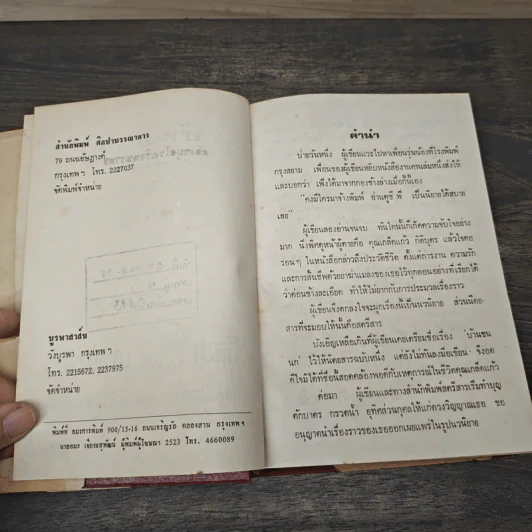 สำนักพิมพ์ ศิลปาบรรณาคาร
79 ถนนอัษฎางค์
กรุงเทพฯ โทร. 2227037
จัดพิมพ์จำหน่าย
บูรพาสาส์น
วังบูรพา กรุงเทพฯ
โทร. 2215672, 2237975
จัดจำหน่าย
พิมพ์ที่ อมรการพิมพ์ 900/15-16 ถนนเจริญรัถ คลองสาน กรุงเทพฯ
นายอมร เจียรสุพัฒน์ ผู้พิมพ์ผู้โฆษณา 2523 โทร. 4660089
คำนำ
บ่ายวันหนึ่ง ผู้เขียนแวะไปหาเพื่อนรุ่นน้องที่โรงพิมพ์
กรุงสยาม เพื่อนของผู้เขียนหยิบหนังสืองานศพเล่มหนึ่งส่งให้
และบอกว่า เพิ่งได้มาจากกองข้างล่างเมื่อกี้นี้เอง
"คงมีใครมาจ้างพิมพ์ อ่านดูซี พี่ เป็นนิยายได้สบาย
เลย"
ผู้เขียนลองอ่านจนจบ ทันใดนั้นก็เกิดความจับใจอย่าง
มาก นั่งพิศดูหน้าผู้ตายคือ คุณเกล็ดแก้ว กิติบุตร แล้วใจคอ
รอนๆ ในหนังสือกล่าวถึงประวัติชีวิต ตั้งแต่การงาน ความรัก
และการสิ้นชีพด้วยยาฆ่าแมลงของเธอไว้ทุกตอนอย่างที่เรียกได้
ว่าค่อนข้างละเอียด ทำให้ไม่ยากกับการประมวลเรื่องราว
ผู้เขียนจึงตกลงใจจะผูกเรื่องนี้เป็นนวนิยาย ส่วนนิตย-
สารที่จะมอบให้นั้นคือสตรีสาร
บังเอิญเหลือเกินที่ผู้เขียนเคยเตรียมชื่อเรื่อง บ้านขน
นก ไว้ให้นิตยสารฉบับหนึ่ง แต่ยังไม่ทันลงมือเขียน จึงอด
คิดไม่ได้ที่ชื่อนี้สอดคล้องพอดีกับเหตุการณ์ในชีวิตคุณเกล็ดแก้ว
ต่อมา ผู้เขียนและทางสำนักพิมพ์สตรีสารเริ่มทำบุญ
ตักบาตร กรวดน้ำ อุทิศส่วนกุศลให้แก่ดวงวิญญาณเธอ ขอ
อนุญาตนำเรื่องราวของเธอออกเผยแพร่ในรูปนวนิยาย